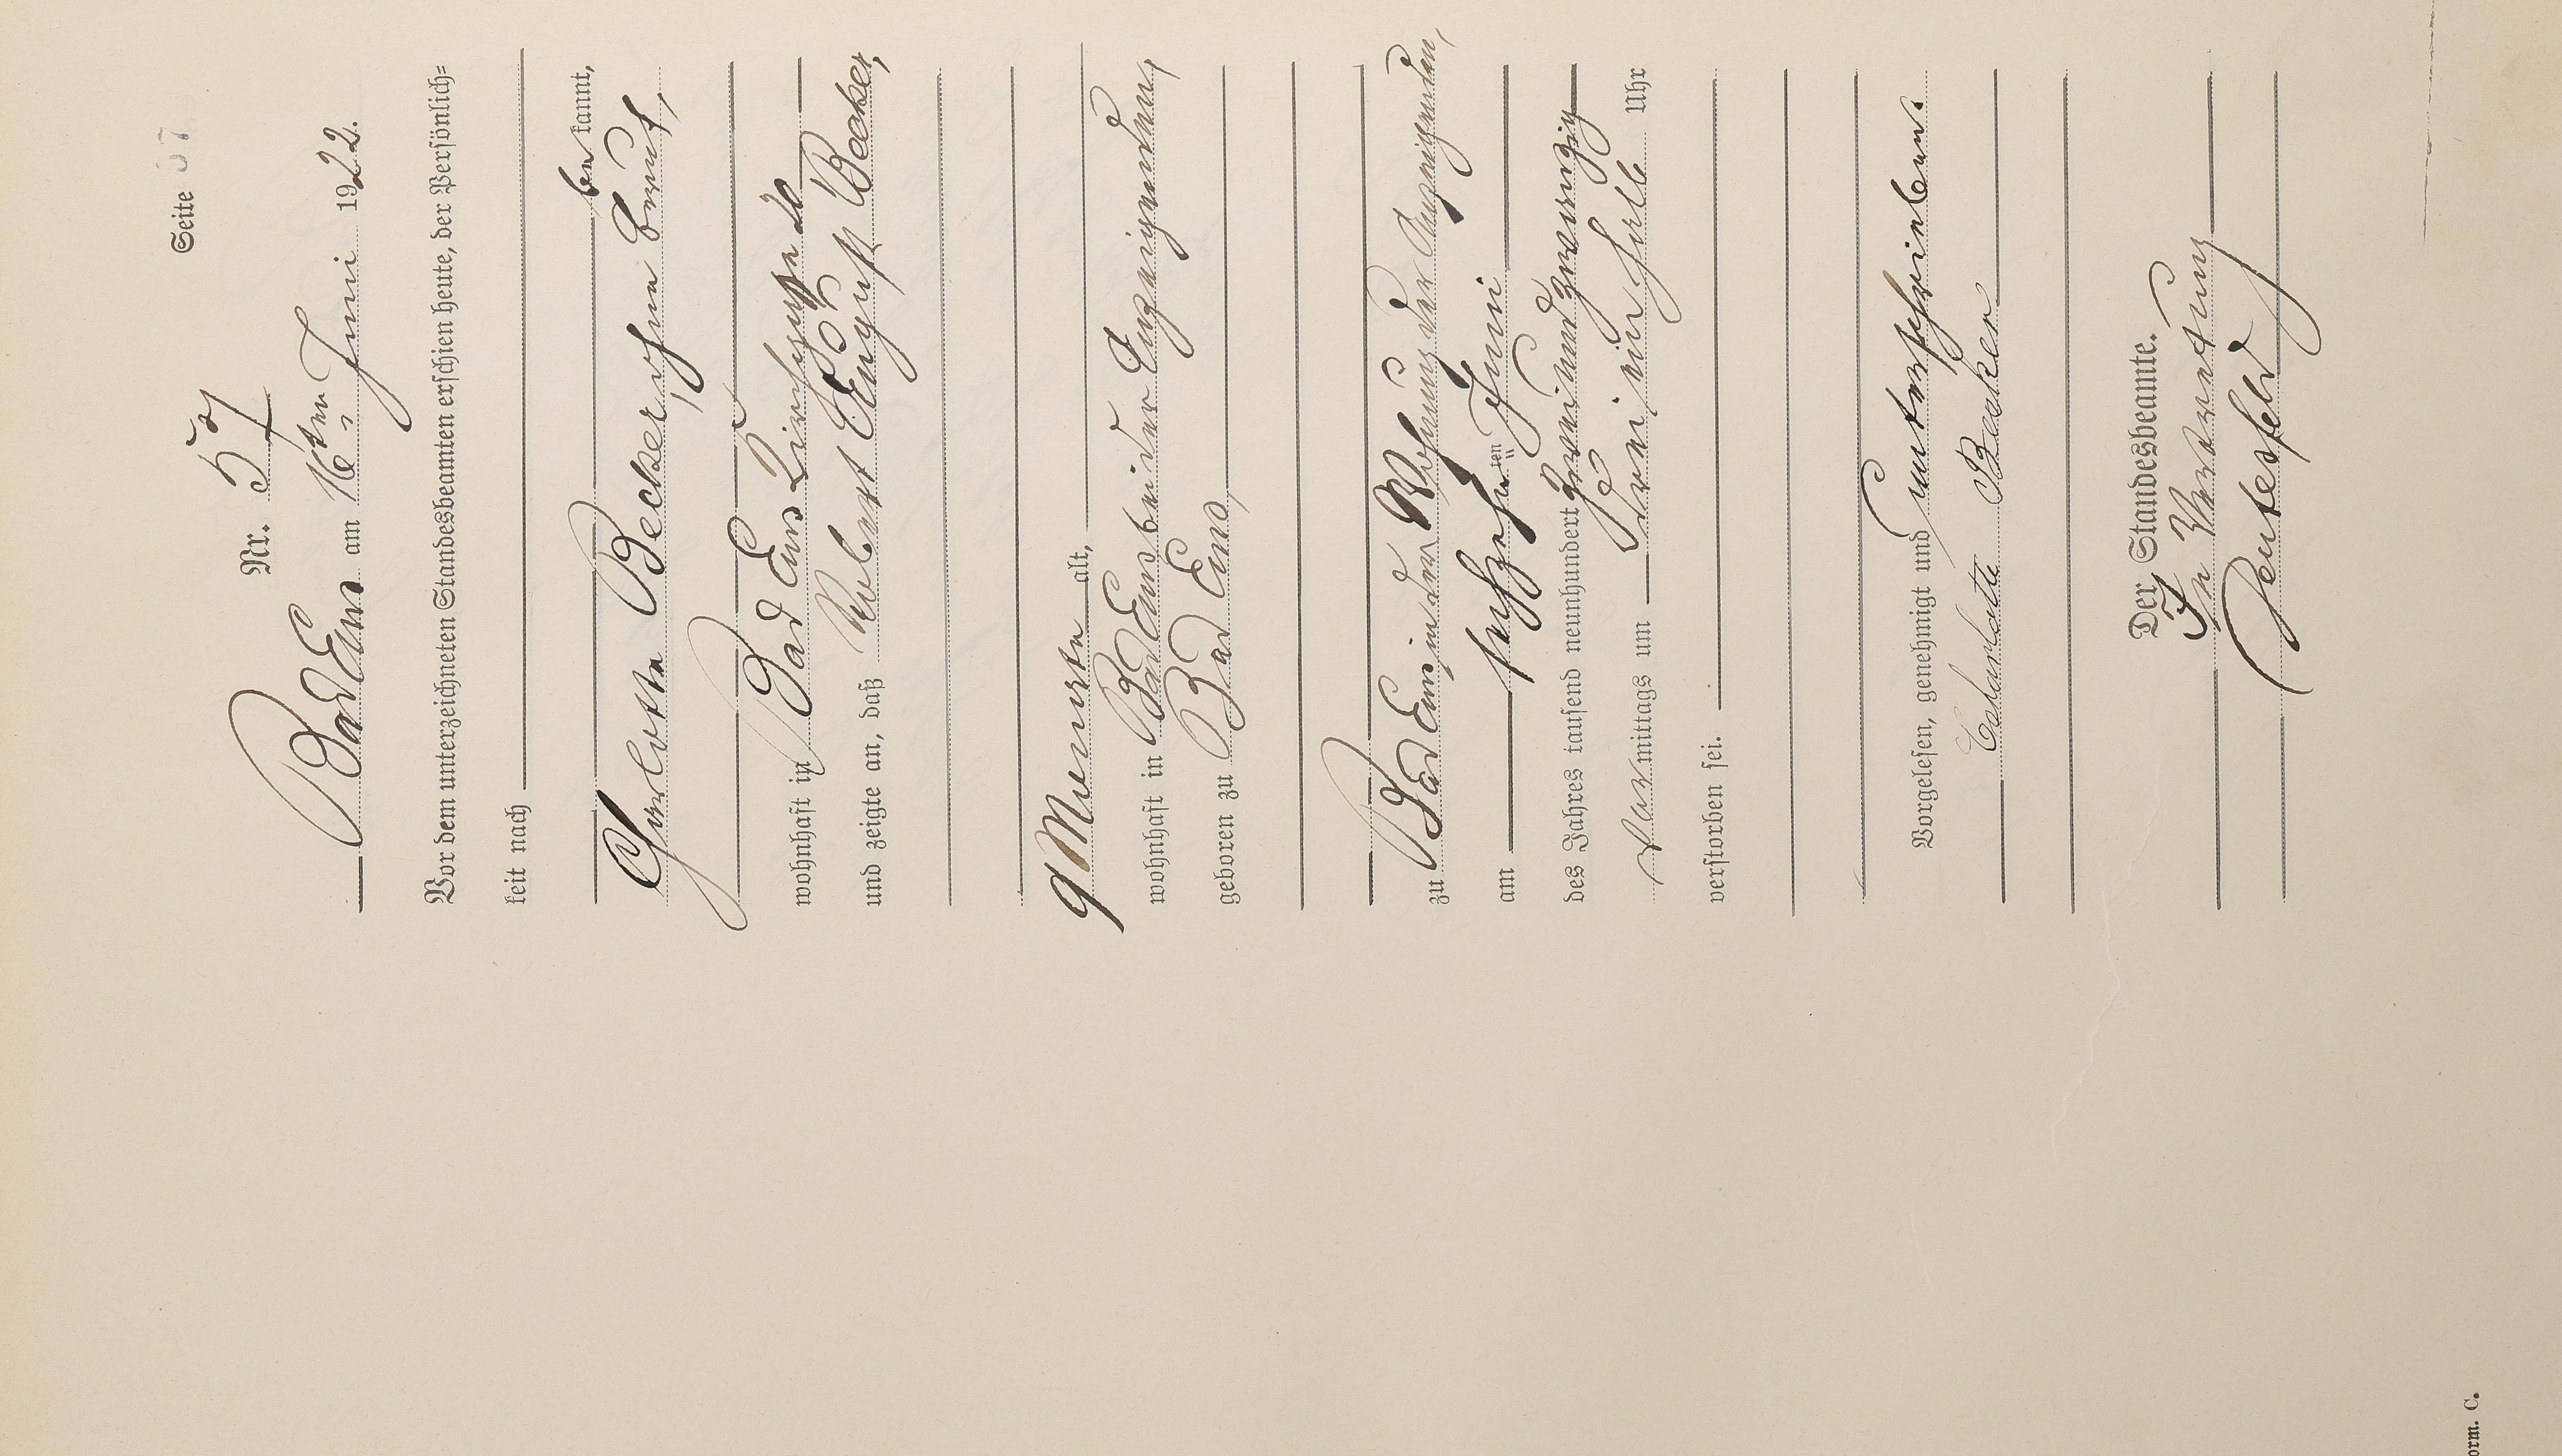 Seite 57
Nr. 57
Bad Ems am 16ten Juni 1922.
Vor dem unterzeichneten Standesbeamten erschien heute, der Persönlich=
keit nach
be kannt,
Charlotte Becker, ohne Beruf,
wohnhaft in Bad Ems
und zeigte an, daß Robert August Becker,
9 Monate alt,
wohnhaft in Bad Ems bei der Anzeigenden,
geboren zu Bad Ems,
zu Bad Ems in der Wohnung der Anzeigenden,
am sechzehn ten Juni
des Jahres tausend neunhundert zweiundzwanzig
Vormittags um drei ein halb Uhr
verstorben sei.
Vorgelesen, genehmigt und unterschrieben.
Charlotte Becker
Der Standesbeamte.
In Vertretung
orm. C.